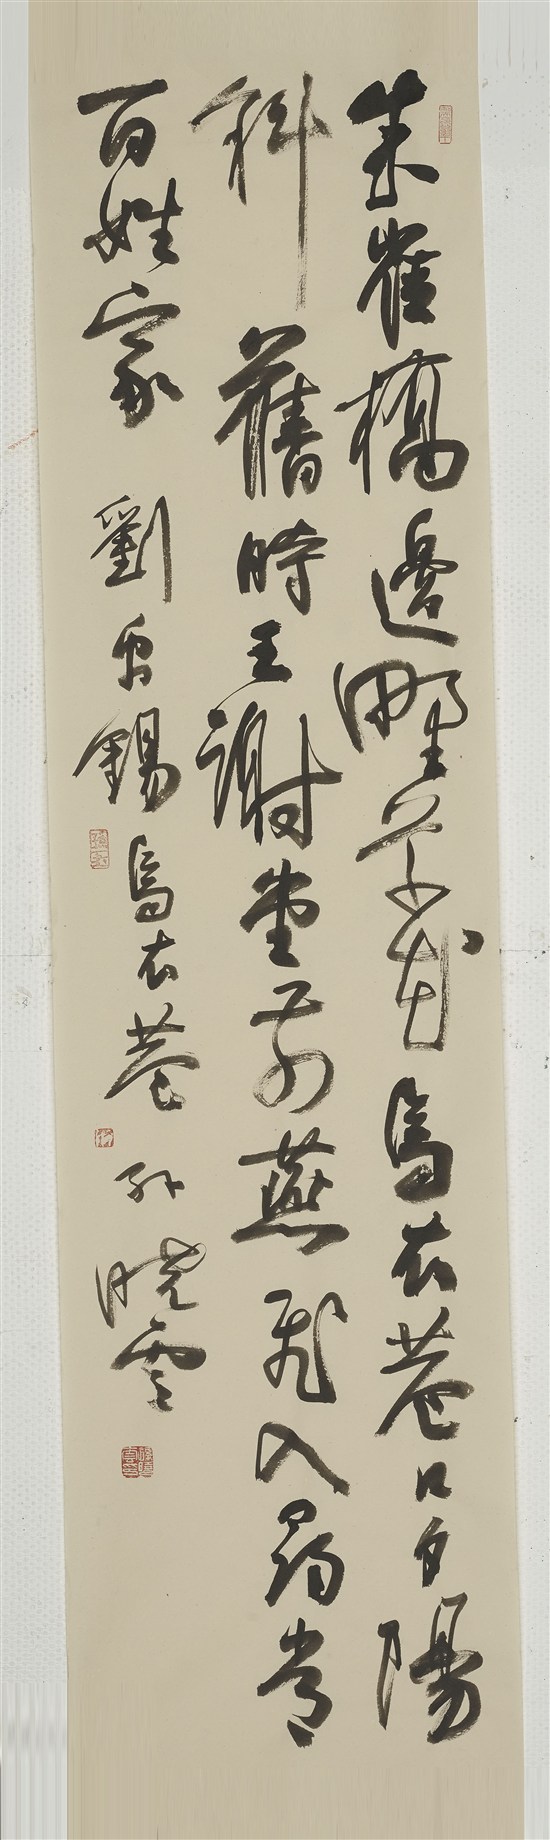 朱雀橋邊野草花烏衣巷口夕陽
斜舊時王謝堂前燕飛入尋常
百姓家 劉禹錫烏衣巷 孫曉雲